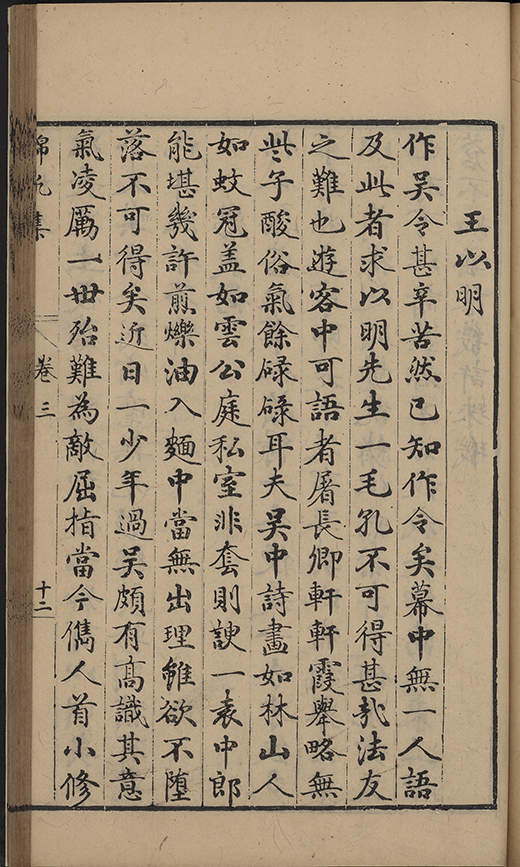 王以明
作吳令甚辛苦然已知作令矣幕中無一人語
及此者求以明先生一毛孔不可得甚矣法友
之難也遊客中可語者屠長卿軒軒霞舉略無
些子酸俗氣餘碌碌耳夫吳中詩畫如林山人
如蚊冠盖如雲公庭私室非套則諛一袁中郎
能堪幾許煎爍油入麵中當無出理雖欲不墮
落不可得矣近日一少年過吳頗有高識其意
氣凌厲一世殆難為敵屈指當今儁人首小修
錦帆集
卷三
十二